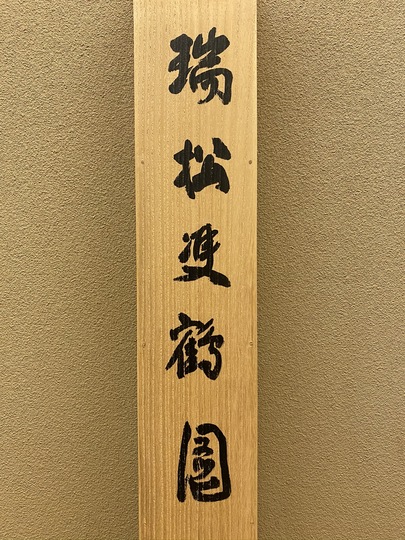 瑞松雙鶴圖